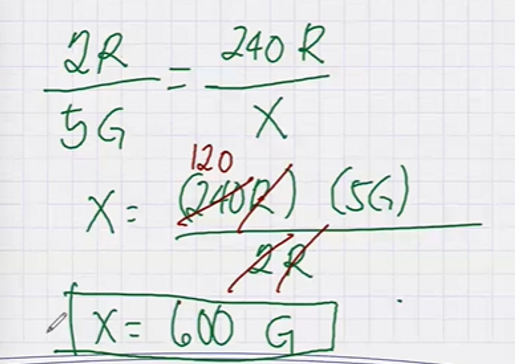 2R = 240 R
5G X
120
X = (240R) (5G)
2R
X = 600 G